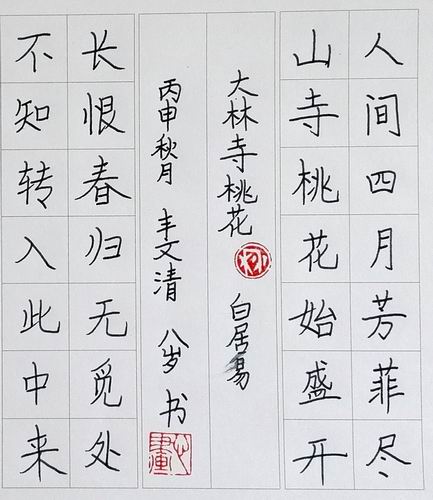 人间四月芳菲尽
山寺桃花始盛开
大林寺桃花 白居易
丙申秋月 丰文清 八岁 书
长恨春归无觅处
不知转入此中来
心畫